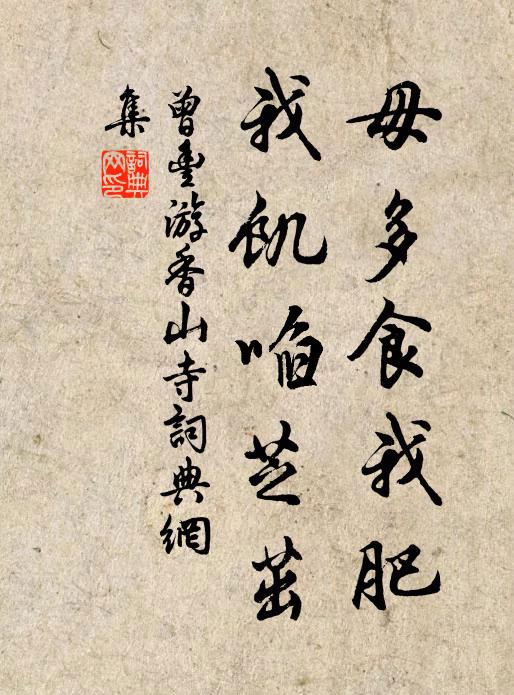 毋多食我肥
我飢啗芝茁
曾豐游香山寺詞典網
集
詞典
网印